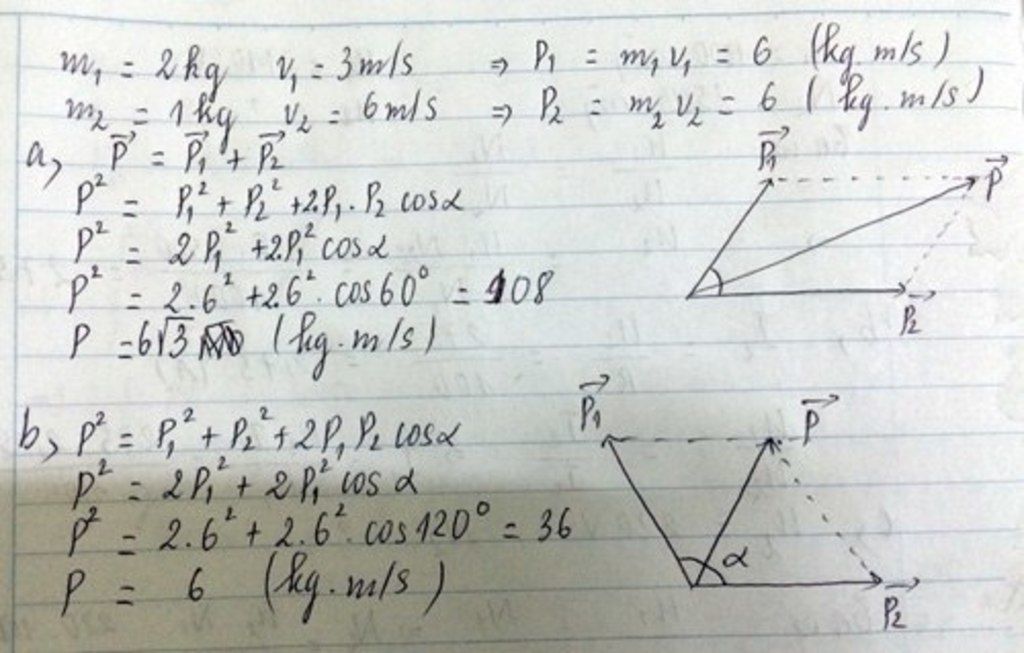 m₁ = 2kg v₁ = 3m/s ⇒ P₁ = m₁v₁ = 6 (kg.m/s)
m₂ = 1kg v₂ = 6m/s ⇒ P₂ = m₂v₂ = 6 (kg.m/s)
a, P⃗ = P⃗₁ + P⃗₂
P² = P₁² + P₂² + 2.P₁.P₂ cosα
P² = 2P₁² + 2.P₁² cosα
P² = 2.6² + 2.6². cos60° = 108
P = 6√3 (kg.m/s)
P⃗₁
P⃗
P⃗₂
b, P² = P₁² + P₂² + 2P₁P₂ cosα
P² = 2P₁² + 2P₁² cos α
P² = 2.6² + 2.6². cos120° = 36
P = 6 (kg.m/s)
P⃗₁ P⃗
α
P⃗₂